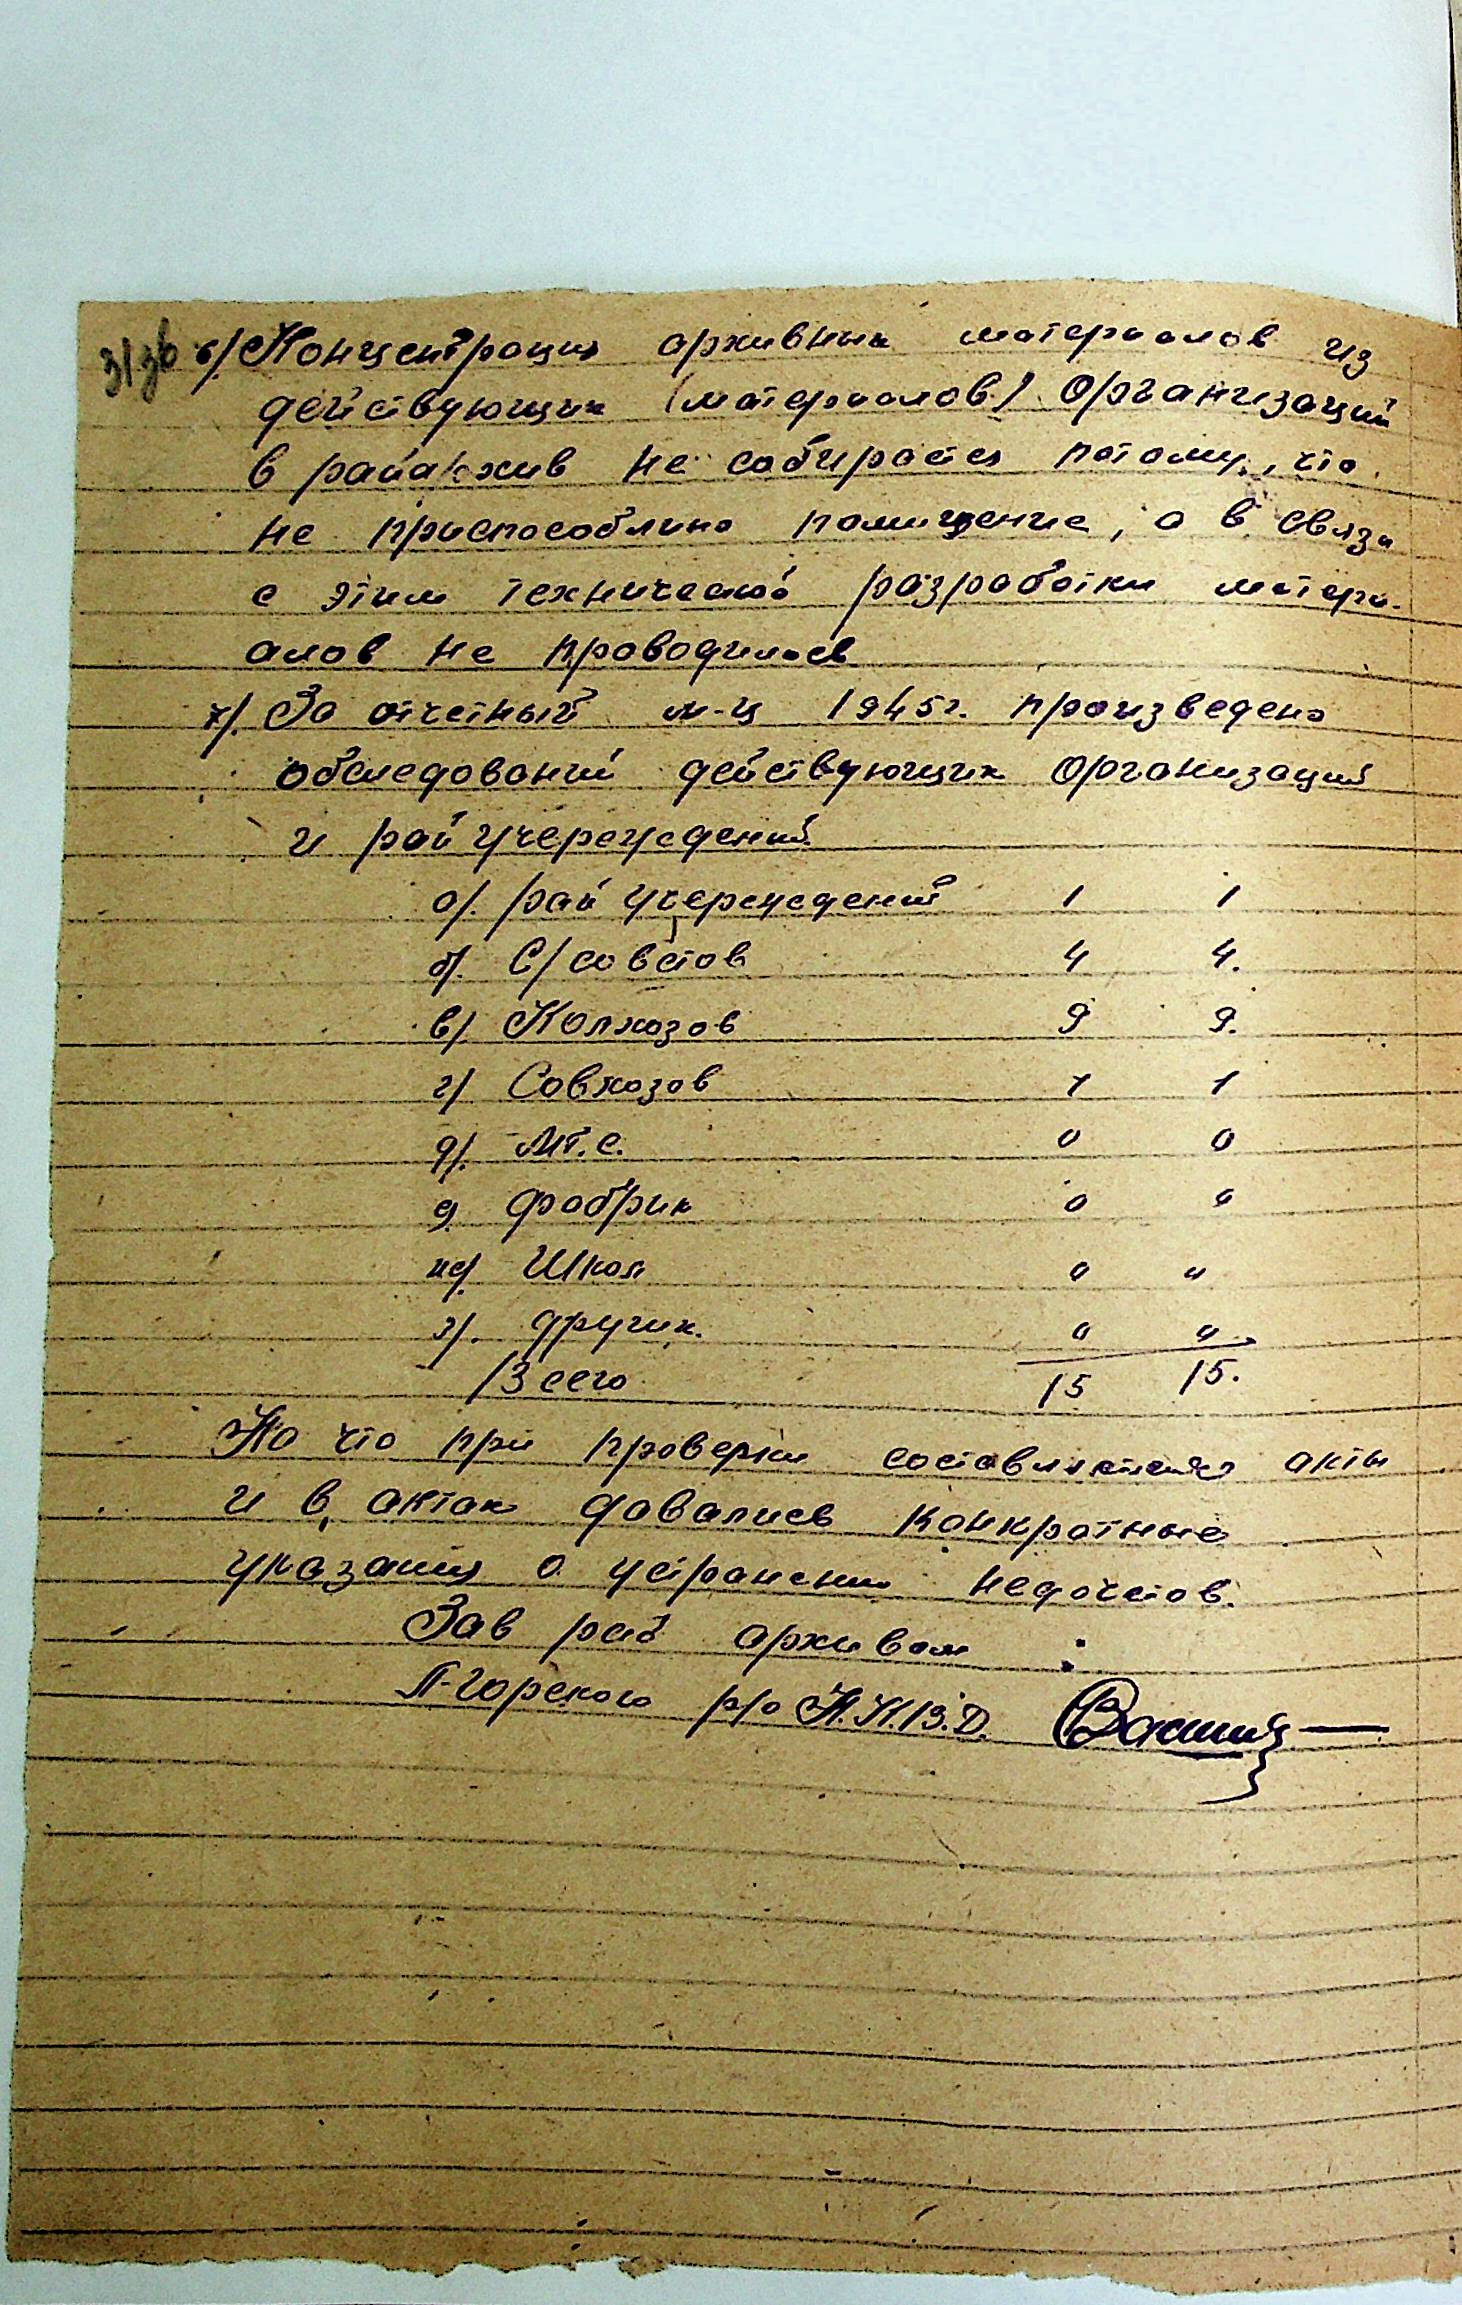 6/. Концентрация архивных материалов из
действующих (материалов) Организаций
в райархив не собирается потому, что
не приспособлино помищение, а в связи
с этим технической разработки матери-
алов не проводилось
7/. За отчетный м-ц 1945г. произведено
обследований действующих Организаций
и рай учереждений.
а/. рай учереждений 1 1
б/. С/советов 4 4.
в/ Колхозов 9 9.
г/ Совхозов 1 1
д/. МТ.С. 0 0
е) фабрик 0 0
ж/. Школ 0 "
з/. других. 0 0
Всего 15 15.
На что при проверки составлялися акты
и в актах давались конкратные
указания о устранении недочетов.
Зав рай архивом :
П-Горского р/о Н.К.В.Д.